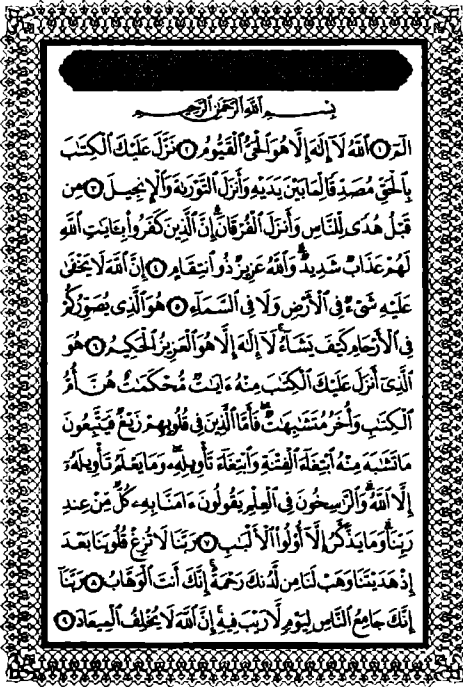 بِسْمِ ٱللَّهِ ٱلرَّحْمَٰنِ ٱلرَّحِيمِ
الٓمٓ ١ ٱللَّهُ لَآ إِلَٰهَ إِلَّا هُوَ ٱلْحَىُّ ٱلْقَيُّومُ ٢ نَزَّلَ عَلَيْكَ ٱلْكِتَٰبَ
بِٱلْحَقِّ مُصَدِّقًا لِّمَا بَيْنَ يَدَيْهِ وَأَنزَلَ ٱلتَّوْرَىٰةَ وَٱلْإِنجِيلَ ٣ مِن
قَبْلُ هُدًى لِّلنَّاسِ وَأَنزَلَ ٱلْفُرْقَانَ ۗ إِنَّ ٱلَّذِينَ كَفَرُوا۟ بِـَٔايَٰتِ ٱللَّهِ
لَهُمْ عَذَابٌ شَدِيدٌ ۗ وَٱللَّهُ عَزِيزٌ ذُو ٱنتِقَامٍ ٤ إِنَّ ٱللَّهَ لَا يَخْفَىٰ
عَلَيْهِ شَىْءٌ فِى ٱلْأَرْضِ وَلَا فِى ٱلسَّمَآءِ ٥ هُوَ ٱلَّذِى يُصَوِّرُكُمْ
فِى ٱلْأَرْحَامِ كَيْفَ يَشَآءُ ۚ لَآ إِلَٰهَ إِلَّا هُوَ ٱلْعَزِيزُ ٱلْحَكِيمُ ٦ هُوَ
ٱلَّذِىٓ أَنزَلَ عَلَيْكَ ٱلْكِتَٰبَ مِنْهُ ءَايَٰتٌ مُّحْكَمَٰتٌ هُنَّ أُمُّ
ٱلْكِتَٰبِ وَأُخَرُ مُتَشَٰبِهَٰتٌ ۖ فَأَمَّا ٱلَّذِينَ فِى قُلُوبِهِمْ زَيْغٌ فَيَتَّبِعُونَ
مَا تَشَٰبَهَ مِنْهُ ٱبْتِغَآءَ ٱلْفِتْنَةِ وَٱبْتِغَآءَ تَأْوِيلِهِۦ ۗ وَمَا يَعْلَمُ تَأْوِيلَهُۥٓ
إِلَّا ٱللَّهُ ۗ وَٱلرَّٰسِخُونَ فِى ٱلْعِلْمِ يَقُولُونَ ءَامَنَّا بِهِۦ كُلٌّ مِّنْ عِندِ
رَبِّنَا ۗ وَمَا يَذَّكَّرُ إِلَّآ أُو۟لُوا۟ ٱلْأَلْبَٰبِ ٧ رَبَّنَا لَا تُزِغْ قُلُوبَنَا بَعْدَ
إِذْ هَدَيْتَنَا وَهَبْ لَنَا مِن لَّدُنكَ رَحْمَةً ۚ إِنَّكَ أَنتَ ٱلْوَهَّابُ ٨ رَبَّنَآ
إِنَّكَ جَامِعُ ٱلنَّاسِ لِيَوْمٍ لَّا رَيْبَ فِيهِ ۚ إِنَّ ٱللَّهَ لَا يُخْلِفُ ٱلْمِيعَادَ ٩